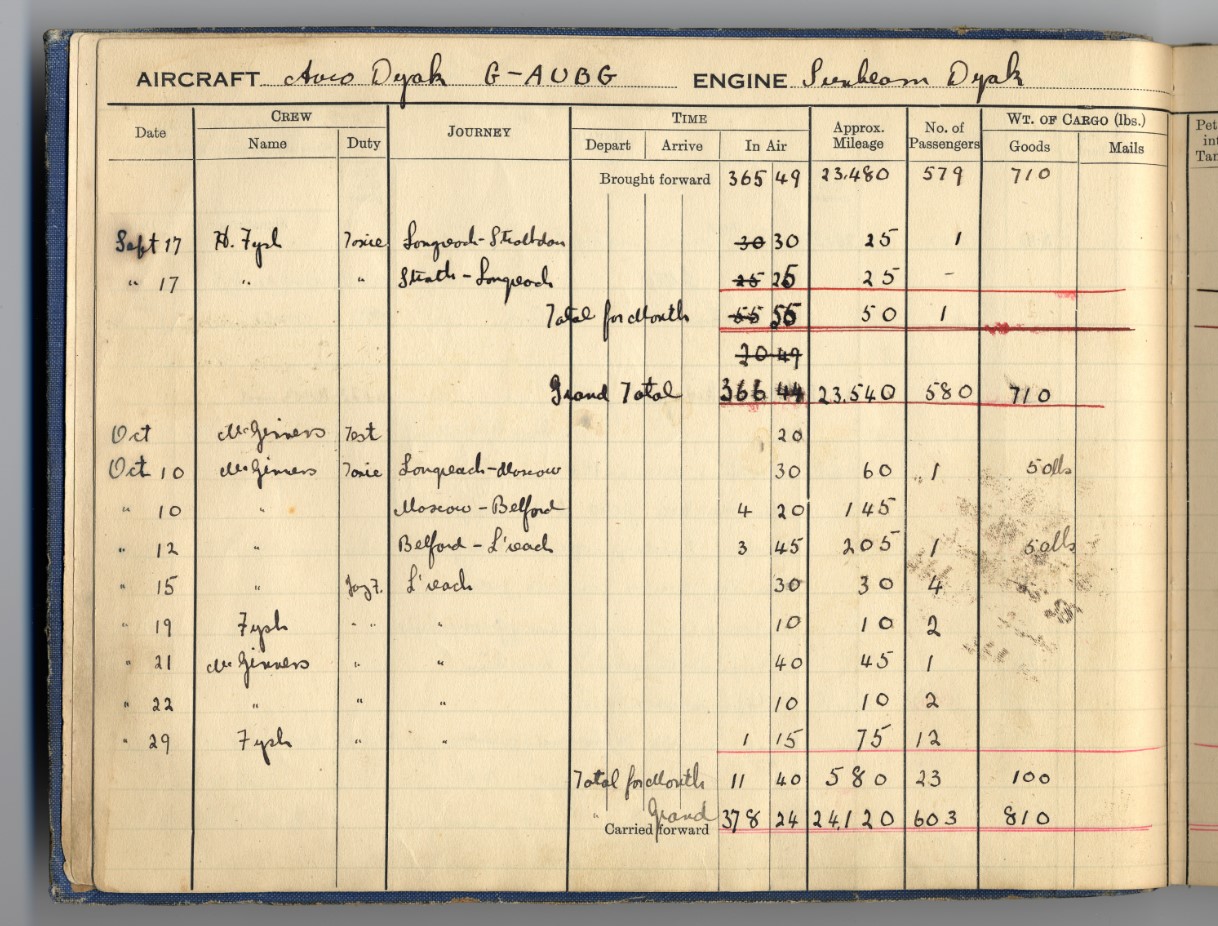 AIRCRAFT Avro Dyak G-AUBG ENGINE Sunbeam Dyak
Date CREW JOURNEY TIME Approx. Mileage No. of Passengers WT. OF CARGO (lbs.) Pet
Name Duty Depart Arrive In Air Goods Mails int Tan
Brought forward 365 49 23.480 579 710
Sept 17 H. Fysh Taxie Longreach-Strathdon 30 30 25 1
" 17 " " Strath-Longreach 25 25 25 -
Total for Month 55 55 50 1
20 49
Grand Total 366 44 23.540 580 710
Oct McGinness Test 20
Oct 10 McGinness Taxie Longreach-Moscow 30 60 1 50lbs
" 10 " Moscow-Belford 4 20 145
" 12 " Belford-L'reach 3 45 205 1 50lbs
" 15 " Joy F. L'reach 30 30 4
" 19 Fysh " " " 10 10 2
" 21 McGinness " " 40 45 1
" 22 " " " 10 10 2
" 29 Fysh " " 1 15 75 12
Total for Month 11 40 580 23 100
" Grand
Carried forward 378 24 24,120 603 810